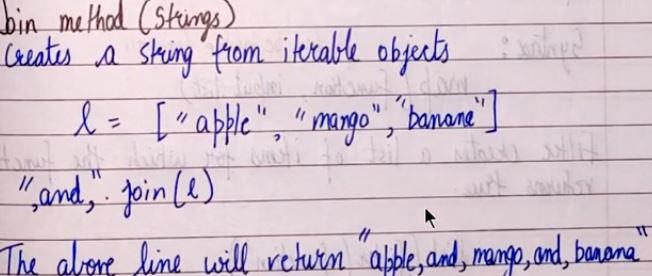 join method (Strings)
Creates a string from iterable objects
l = ["apple", "mango", "banana"]
",and,". join(l)
The above line will return "apple, and, mango, and, banana"